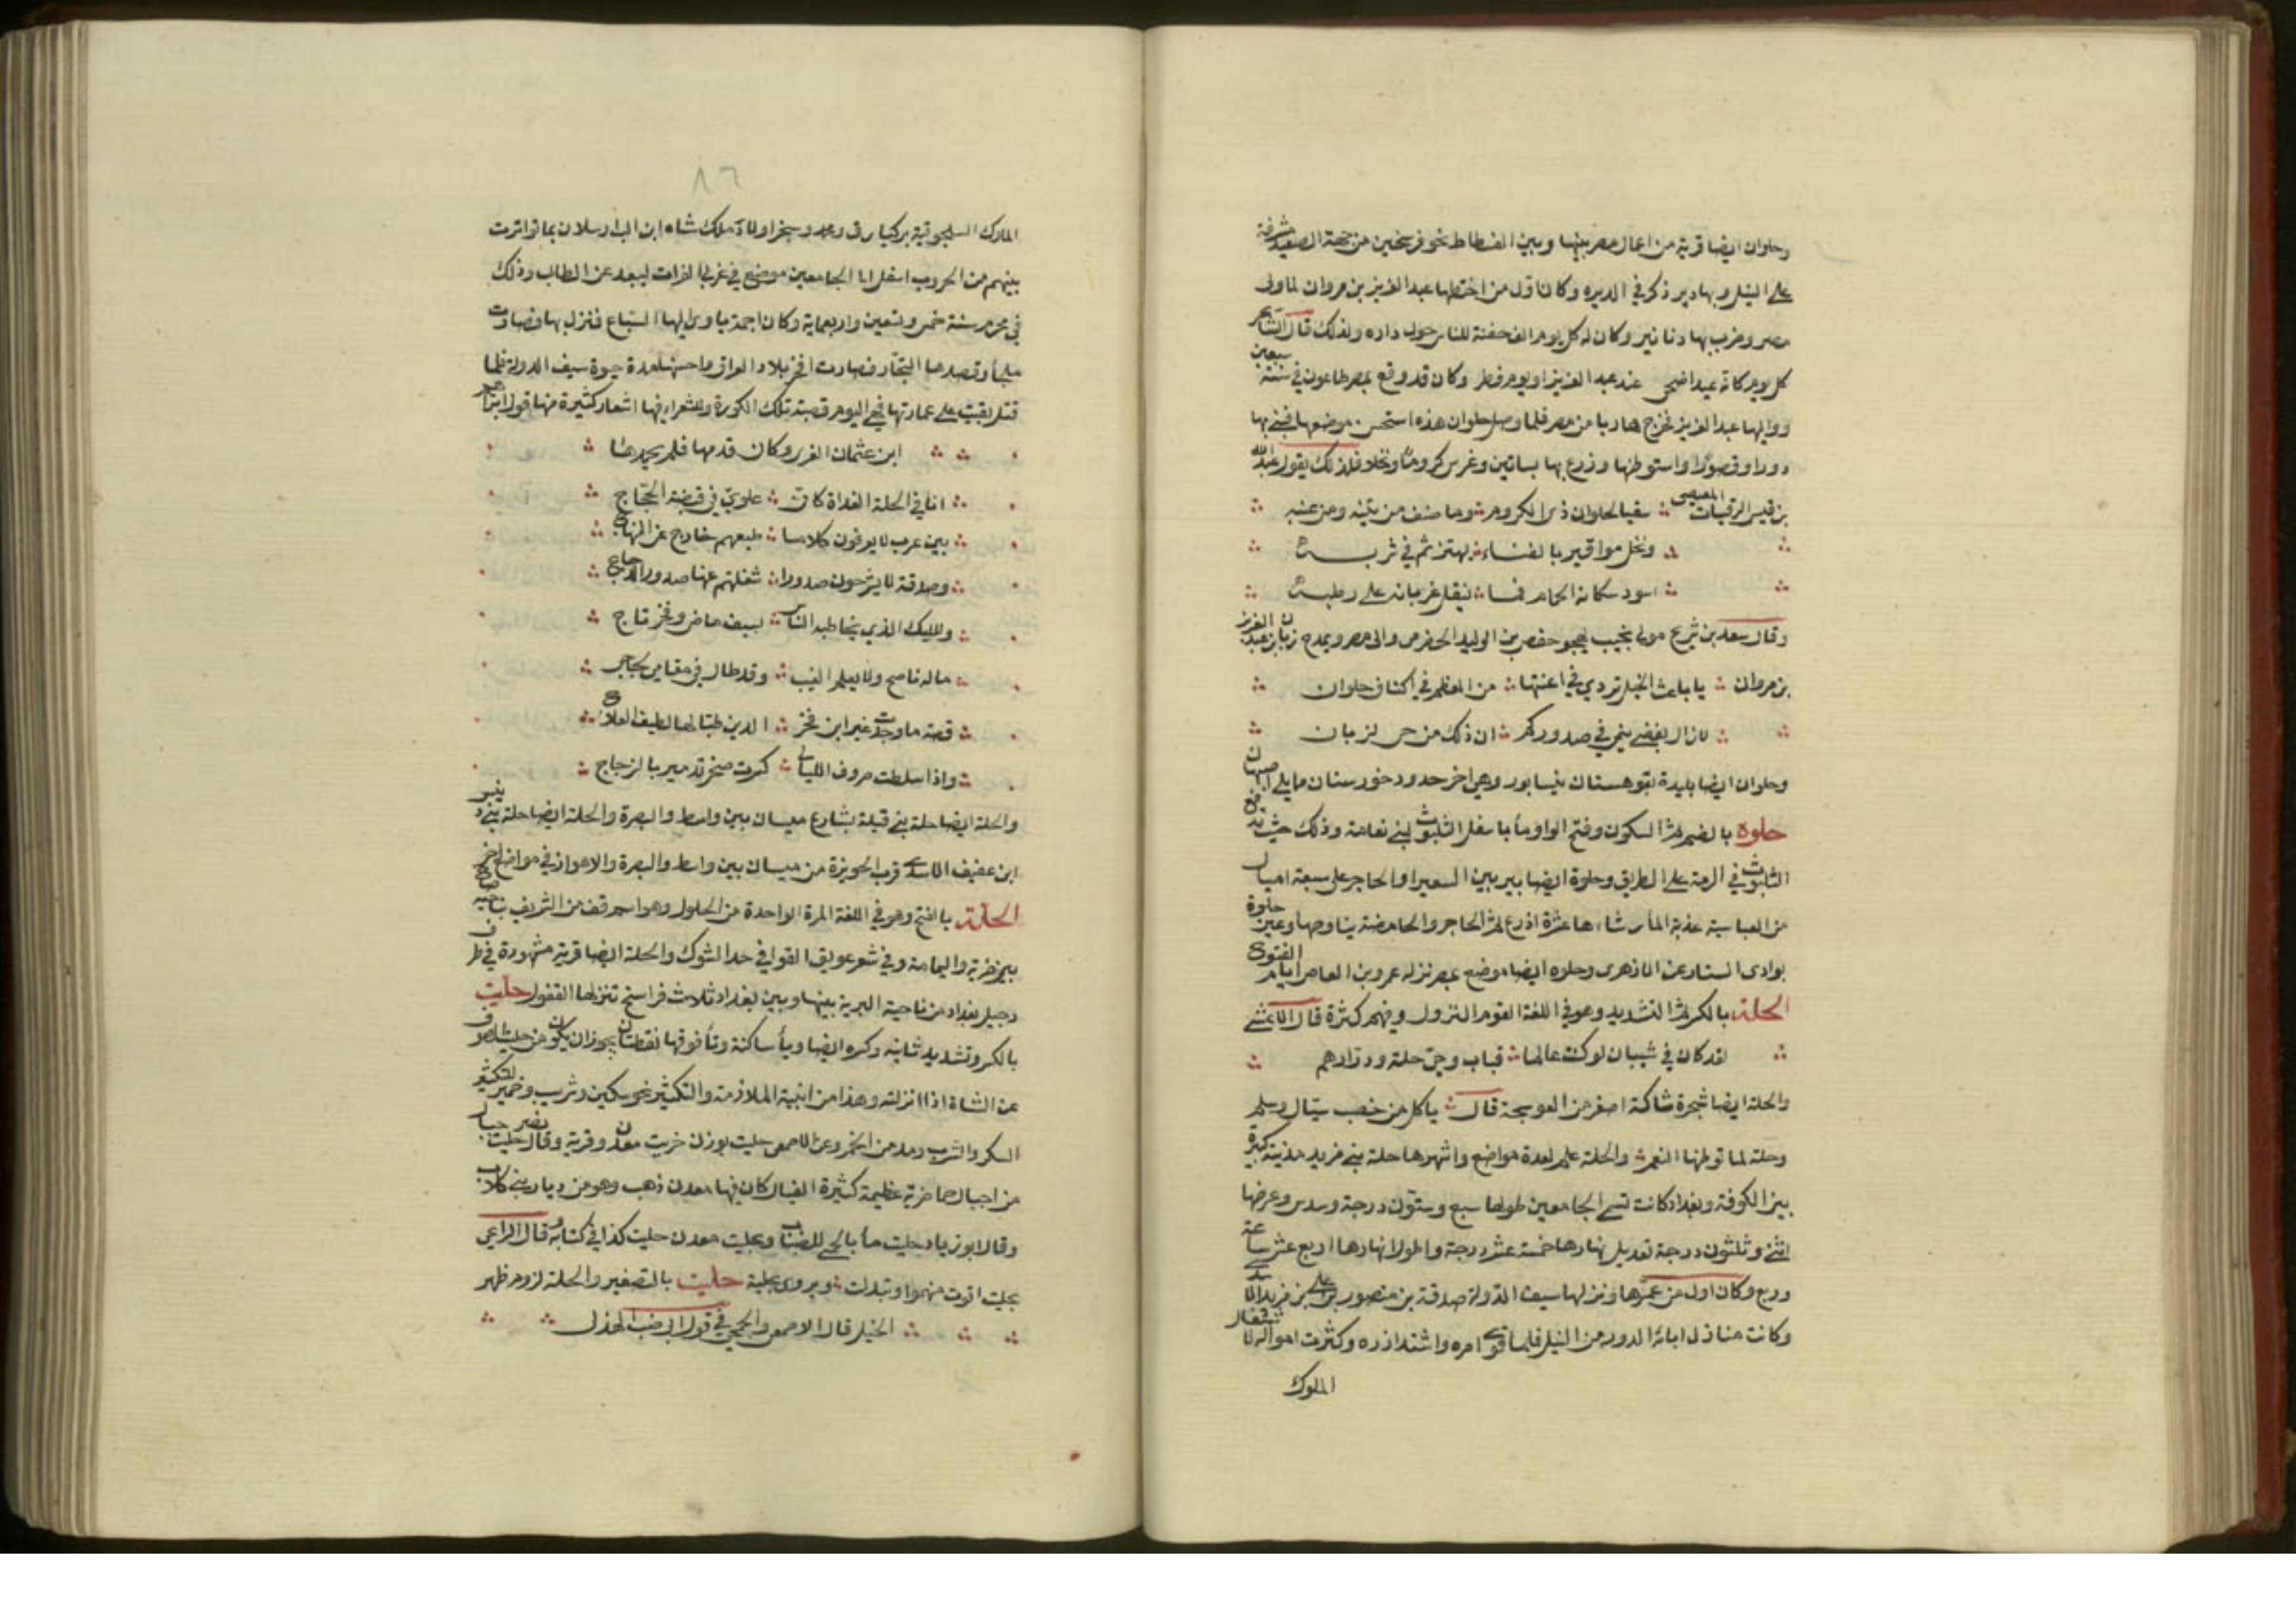 وحلوان ايضا قرية من اعمال مصر بينها وبين الفسطاط نحو فرسخين من جهة الصعيد مشرفة
على النيل وبها دير ذكر في الديرة وكان اول من اختطها عبد العزيز بن مروان لما ولى
مصر وضرب بها دنانير وكان له كل يوم الف جفنة للناس حول داره ولذلك قال الشاعر
كل يوم كانه عيد اضحى عند عبد العزيز او يوم فطر وكان قد وقع بمصر طاعون في سنة سبعين
وواليها عبد العزيز فخرج هاربا من مصر فلما وصل حلوان هذه استحسن موضعها فبنى بها
دورا وقصورا واستوطنها وزرع بها بساتين وغرس كروما ونخلا فلذلك يقول عبد الله
بن قيس الرقيات سقيا لحلوان ذى الكروم وما صنف من تينه ومن عنبه
ونخل مواقير بالفناء يهتز ثم في شربه
اسود سكانه الحمام فما ينفك غربانه على رطبه
وقال سعد بن شريح مولى نجيب يهجو حفص بن الوليد الحضرمى والى مصر ويمدح زبان بن عبد العزيز
بن مروان يا باعث الخيل تردي في اعنتها من المقطم في اكناف حلوان
لازال بغضي ينمى في صدوركم ان ذلك من حى لزبان
وحلوان ايضا بليدة بقوهستان نيسابور وهي اخر حدود خورستان مما يلي اصبهان
حلوه بالضم ثم السكون وفتح الواو ماء باسفل الثلبوت لبني نعامة وذلك حيث يدفع
الثلبوت في الرمة على الطريق وحلوة ايضا بير بين السميرا والحاجر على سبعة اميال
من العباسية عذبة الماء رشاءها عشرة اذرع ثم الحاجر والحامضة يناوحها وعين حلوة
بوادى الستار عن الازهرى وحلوه ايضا موضع بمصر نزله عمرو بن العاص ايام الفتوح
الحلة بالكسر ثم التشديد وهو في اللغة القوم النزول وفيهم كثرة قال الاعشى
لقد كان في شيبان لو كنت عالما قباب وحى حلة ودراهم
والحلة ايضا شجرة شاكة اصغر من العوسجة قال ياكل من خصب سيال وسلم
وحلة لما توطنها النعم والحلة علم لعدة مواضع واشهرها حلة بني مزيد مدينة كبيرة
بين الكوفة وبغداد كانت تسمى الجامعين طولها سبع وستون درجة وسدس وعرضها
اثنى وثلثون درجة تعديل نهارها خمسة عشر درجة واطول نهارها اربع عشر ساعة
وربع وكان اول من عمرها ونزلها سيف الدولة صدقة بن منصور بن على بن مزيد الاسدى
وكانت منازل ابائه الدور من النيل فلما قوى امره واشتد ازره وكثرت امواله لاشتغال
الملوك
٨٦
الملوك السلجوقية بركيارق ومحمد وسنجر اولاد ملك شاه ابن الب ارسلان بما تواترت
بينهم من الحروب انتقل الى الجامعين موضع في غربي الفرات ليبعد عن الطالب وذلك
في محرم سنة خمس وتسعين واربعماية وكان اجمة ياوى اليها السباع فنزل بها فصارت
ملجأ وقصدها التجار فصارت افخر بلاد العراق واحسنها مدة حيوة سيف الدولة فلما
قتل بقيت على عمارتها فهي اليوم قصبة تلك الكورة وللشعراء فيها اشعار كثيرة منها قول ابراهيم
ابن عثمان الغزى وكان قدمها فلم يحمدها
انا في الحلة الغداة كانى علوى في قبضة الحجاج
بين عرب لا يعرفون كلاما طبعهم خارج عن المنهاج
وصدقة لا يشرحون صدورا شغلتهم عنها صدور الدجاج
والمليك الذي يخاطبه الناس بسيف ماض وفخر تاج
ماله ناصح ولا يعلم الغيب وقد طال في مقامي لجاجى
قصة ما وجدت غير ابن فخر الدين طبا لها لطيف العلاج
واذا سلطت صروف الليالى كسرت صخر تدمير بالزجاج
والحلة ايضا حلة بني قيلة بشارع ميسان بين واسط والبصرة والحلة ايضا حلة بني دبيس
ابن عفيف الاسدى قرب الحويزة من ميسان بين واسط والبصرة والاهواز في مواضع اخر
الحلة بالفتح وهو في اللغة المرة الواحدة من الحلول وهو اسم قف من الشريف بناحية
بين ضرية واليمامة وفي شعر عويف القوافي حد الشوك والحلة ايضا قرية مشهورة في طرف
دجيل بغداد من ناحية البرية بينها وبين بغداد ثلاث فراسخ تنزلها القفول حليت
بالكسر وتشديد ثانيه وكسره ايضا وياء ساكنة وتاء فوقها نقطتان يجوز ان يكون من حلت الصوف
عن الشاة اذا انزلته وهذا من ابنية الملازمة والتكثير نحو سكين وشريب وخمير لتكثير
السكر والشرب ومدمن الخمر وعن الاصمعى حليت بوزن خريت معدن وقرية وقال نصر حليت جبال
من اجبال حما ضرية عظيمة كثيرة القنان كان فيها معدن ذهب وهو من ديار بني كلاب
وقال ابو زياد حليت ماء بالحمى للضباب وبحليت معدن حليت كذا في كتابه وقال الراعى
بحليت اقوت منهما وتبدلت ويروى بحلية حليت بالتصغير والحلة لزوم ظهر
الخيل قال الاصمعى والجمحى في قول ابى ضب الهذلى